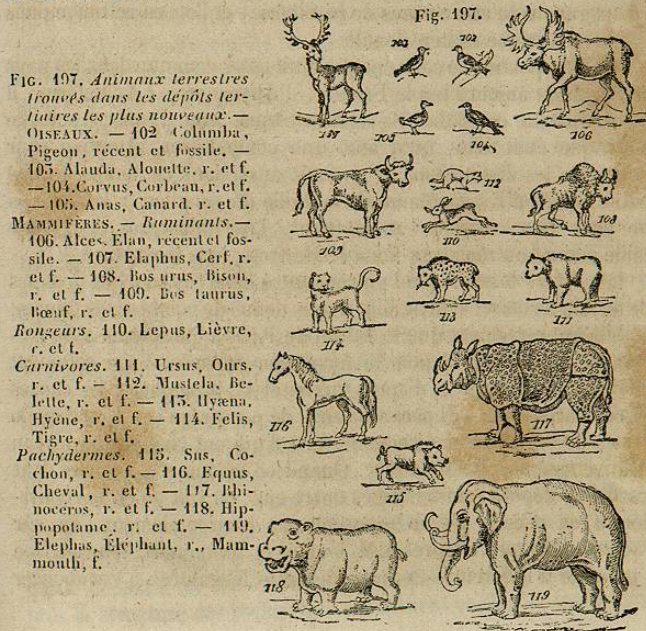 Fig. 197.
FIG. 197. Animaux terrestres
trouvés dans les dépôts ter-
tiaires les plus nouveaux.—
OISEAUX. — 102 Columba,
Pigeon, récent et fossile. —
103. Alauda, Alouette, r. et f.
—104. Corvus, Corbeau, r. et f.
— 105. Anas, Canard. r. et f.
MAMMIFÈRES. — Ruminants.—
106. Alces, Elan, récent et fos-
sile. — 107. Elaphus, Cerf, r.
et f. — 108. Bos urus, Bison,
r. et f. — 109. Bos taurus,
Bœuf, r. et f.
Rongeurs. 110. Lepus, Lièvre,
r. et f.
Carnivores. 111. Ursus, Ours,
r. et f. — 112. Mustela, Be-
lette, r. et f. — 113. Hyæna,
Hyène, r. et f. — 114. Felis,
Tigre, r. et f.
Pachydermes. 115. Sus, Co-
chon, r. et f. — 116. Equus,
Cheval, r. et f. — 117. Rhi-
nocéros, r. et f. — 118. Hip-
popotame, r. et f. — 119.
Elephas, Éléphant, r., Mam-
mouth, f.
103
102
105
104
106
112
109
110
108
114
113
111
116
117
115
118
119